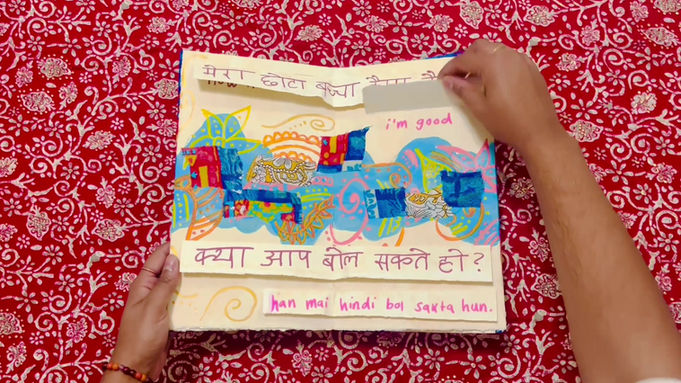 मेरा छोटा बच्चा कैसा
i'm good
क्या आप बोल सकते हो?
han mai hindi bol sakta hun.